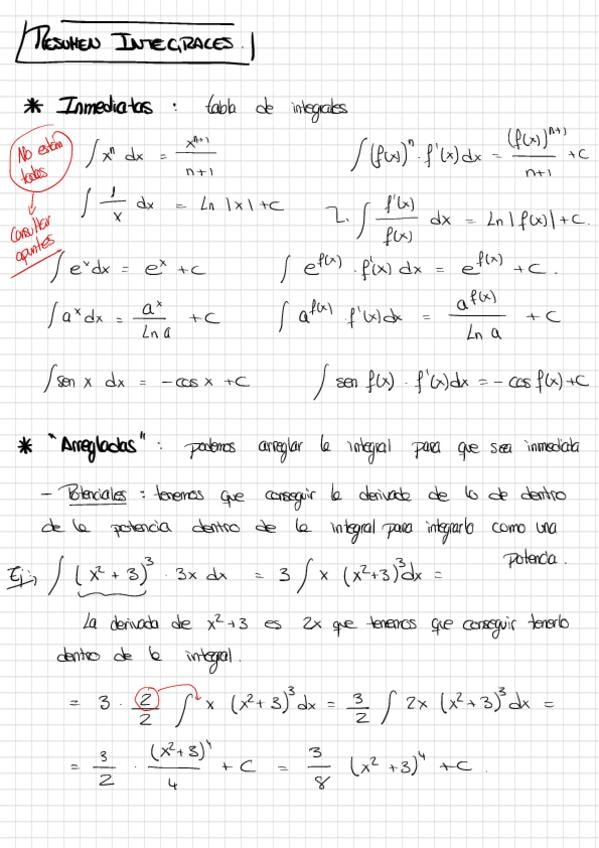 RESUMEN INTEGRALES.
* Inmediatas : tabla de integrales
No están todas
Consultar apuntes
∫ x^n dx = x^(n+1)/(n+1)
∫ (f(x))^n · f'(x) dx = (f(x))^(n+1)/(n+1) + C
∫ 1/x dx = Ln |x| + C
2. ∫ f'(x)/f(x) dx = Ln |f(x)| + C.
∫ e^x dx = e^x + C
∫ e^f(x) · f'(x) dx = e^f(x) + C.
∫ a^x dx = a^x/Ln a + C
∫ a^f(x) · f'(x) dx = a^f(x)/Ln a + C
∫ sen x dx = - cos x + C
∫ sen f(x) · f'(x) dx = - cos f(x) + C
* "Arregladas" : podemos arreglar la integral para que sea inmediata
- Potenciales : tenemos que conseguir la derivada de lo de dentro
de la potencia dentro de la integral para integrarlo como una
potencia.
Ej: ∫ (x²+3)³ · 3x dx = 3 ∫ x (x²+3)³ dx =
La derivada de x²+3 es 2x que tenemos que conseguir tenerlo
dentro de la integral.
= 3 · 2/2 ∫ x (x²+3)³ dx = 3/2 ∫ 2x (x²+3)³ dx =
= 3/2 · (x²+3)⁴/4 + C = 3/8 (x²+3)⁴ + C.